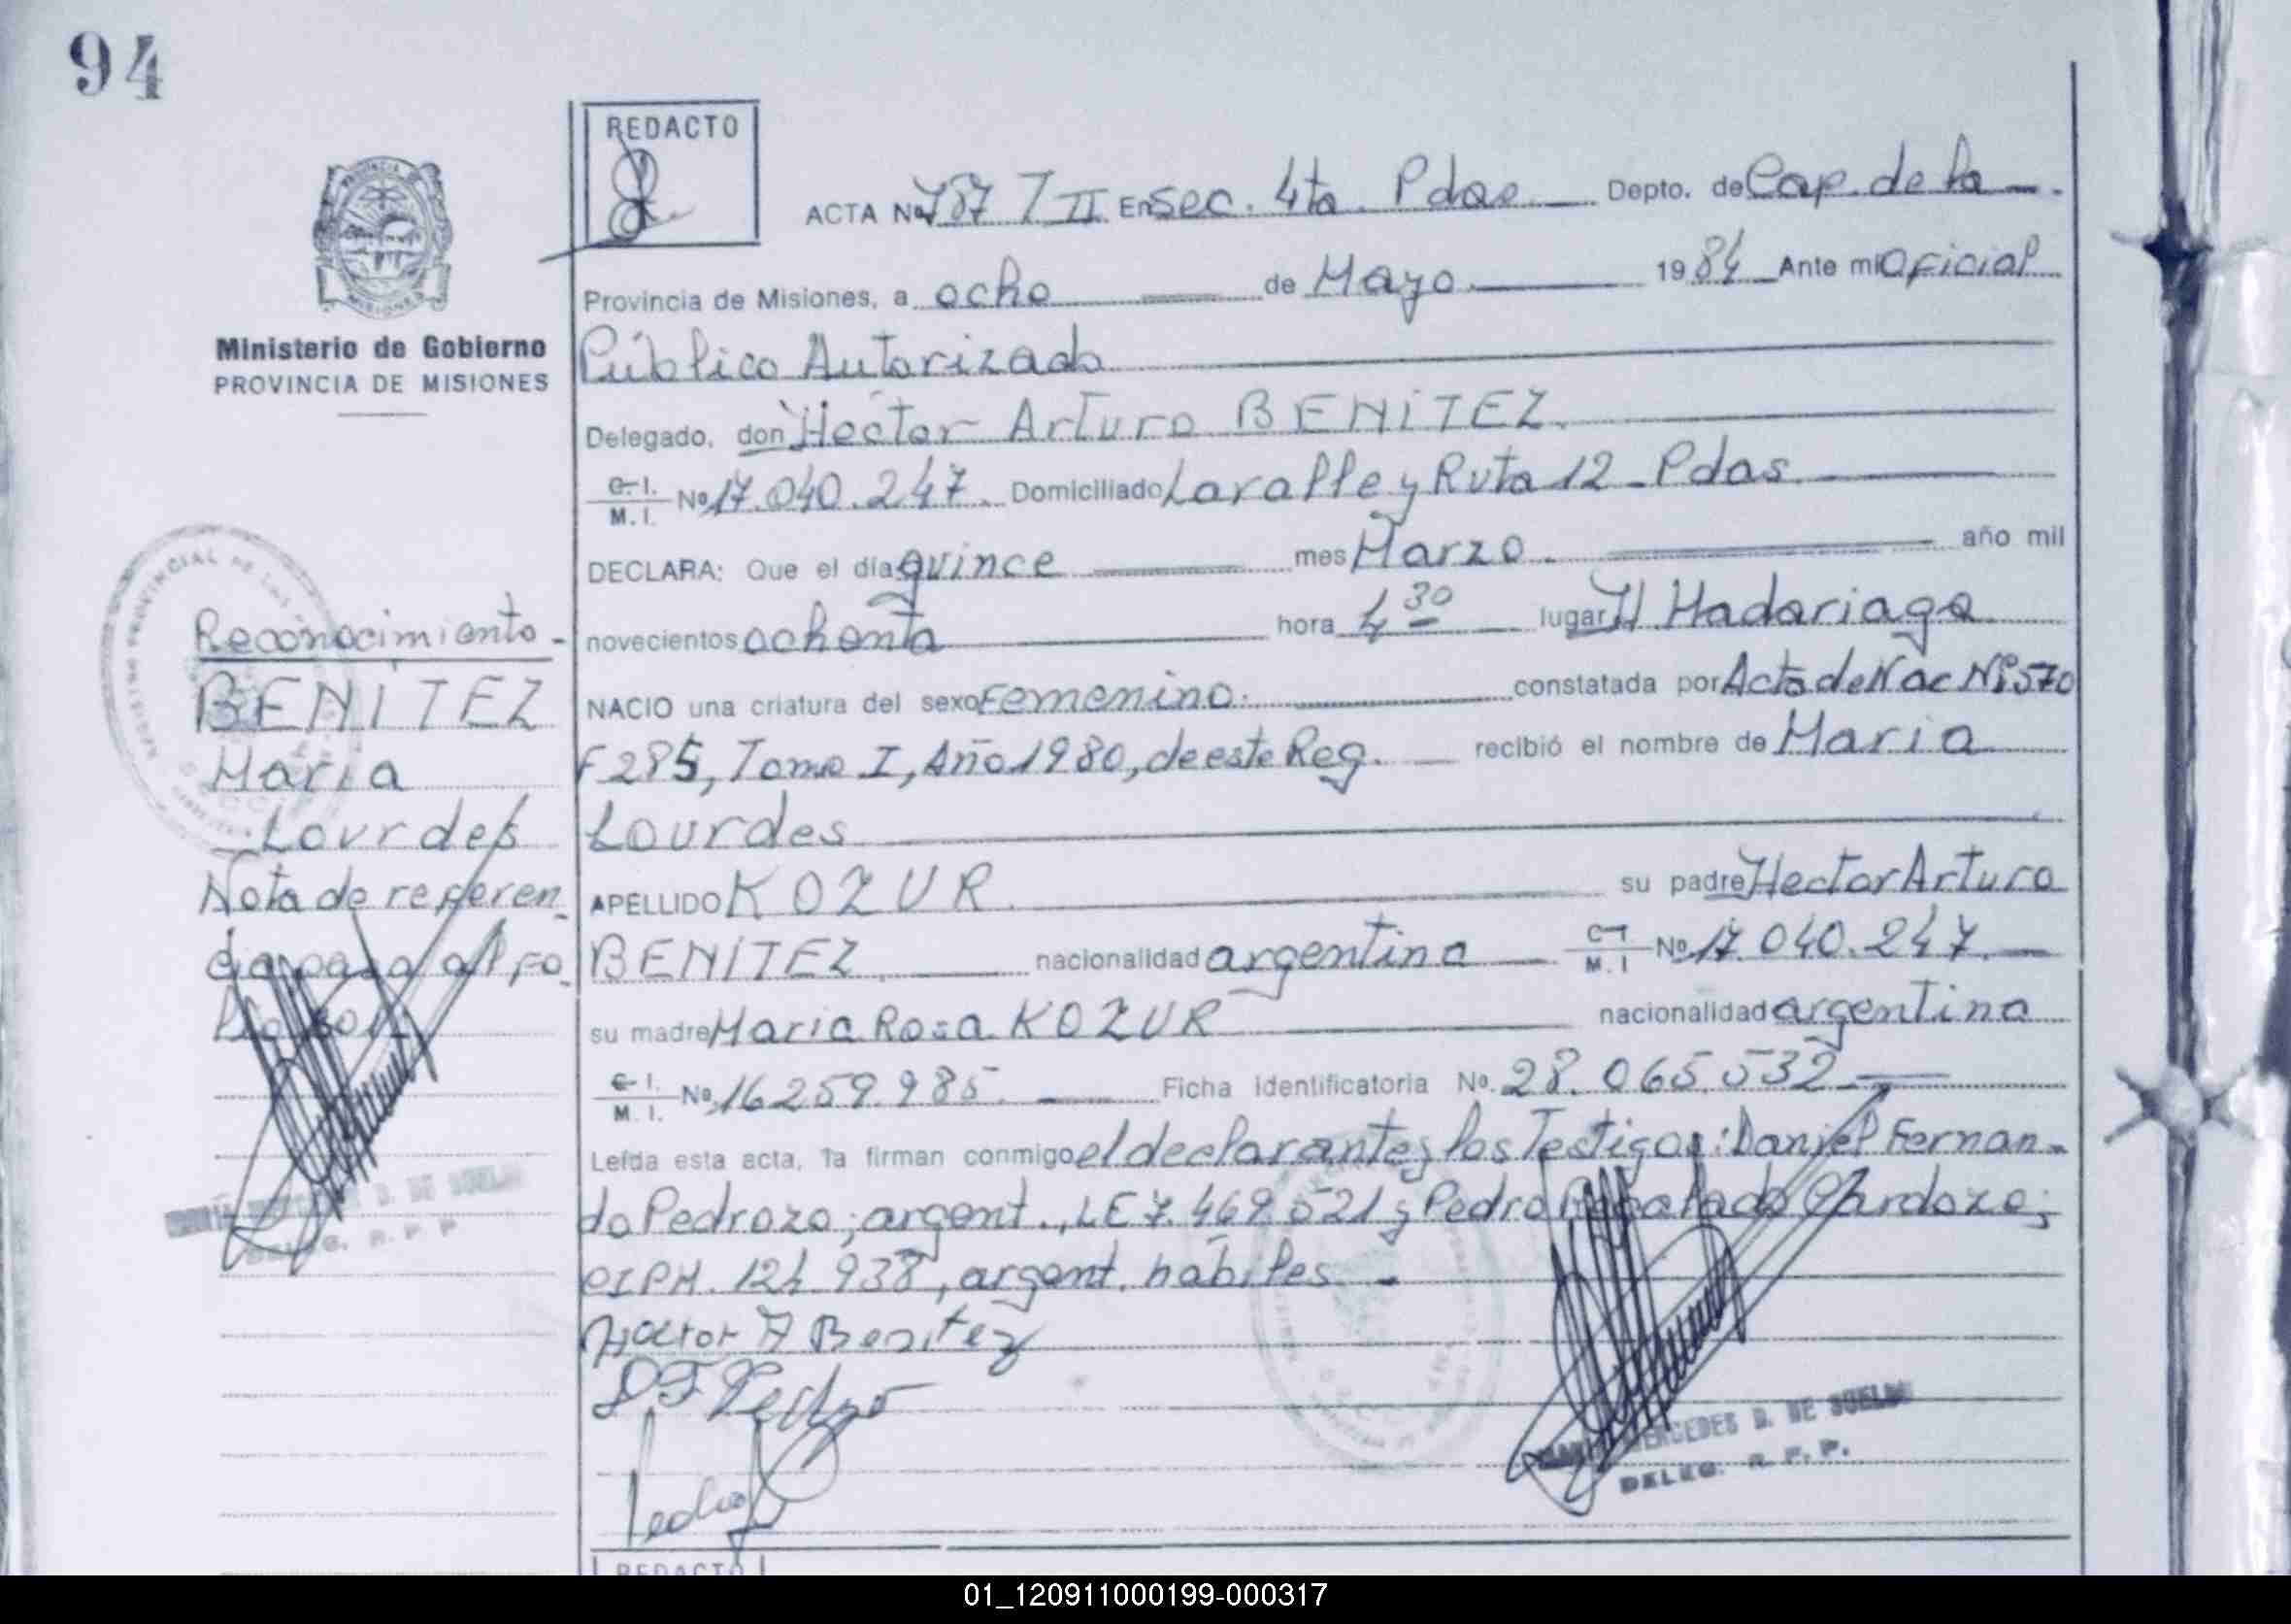 94
REDACTO
ACTA No 787 T II En Sec. 4ta. Pdas Depto. de Cap. de la
Provincia de Misiones, a ocho de Mayo 1984 Ante mi Oficial
Público Autorizado
Ministerio de Gobierno
PROVINCIA DE MISIONES
Delegado, don Hector Arturo BENÍTEZ.
C. I. M. I. No 17.040.247. Domiciliado y Ruta 12 - Pdas
DECLARA: Que el día quince mes Marzo año mil
novecientos ochenta hora 4 30 lugar H Madariaga
NACIO una criatura del sexo Femenino. constatada por Acta de Nac Nº 570
F 285, Tomo I, Año 1980, de este Reg. recibió el nombre de Maria
Lourdes
APELLIDO KOZUR su padre Hector Arturo
BENÍTEZ nacionalidad argentina C I M. I No 17.040.247.
su madre Maria Rosa KOZUR nacionalidad argentina
C. I. M. I. No 16.259.985. Ficha Identificatoria No. 28.065.532
Leída esta acta, la firman conmigo el declarante y los Testigos: Daniel Fernan-
do Pedrozo; argent., LE 7.469.521 y Pedro Cardozo;
CIPM. 124.938, argent. hábiles
Hector A Benitez
Reconocimiento -
BENÍTEZ
Maria
Lourdes
Nota de referen
cia pasa al fo
D. DE
DELEG. R. P. P
MERCEDES D. DE
DELEG. R. P. P.
REDACTO
01_120911000199-000317